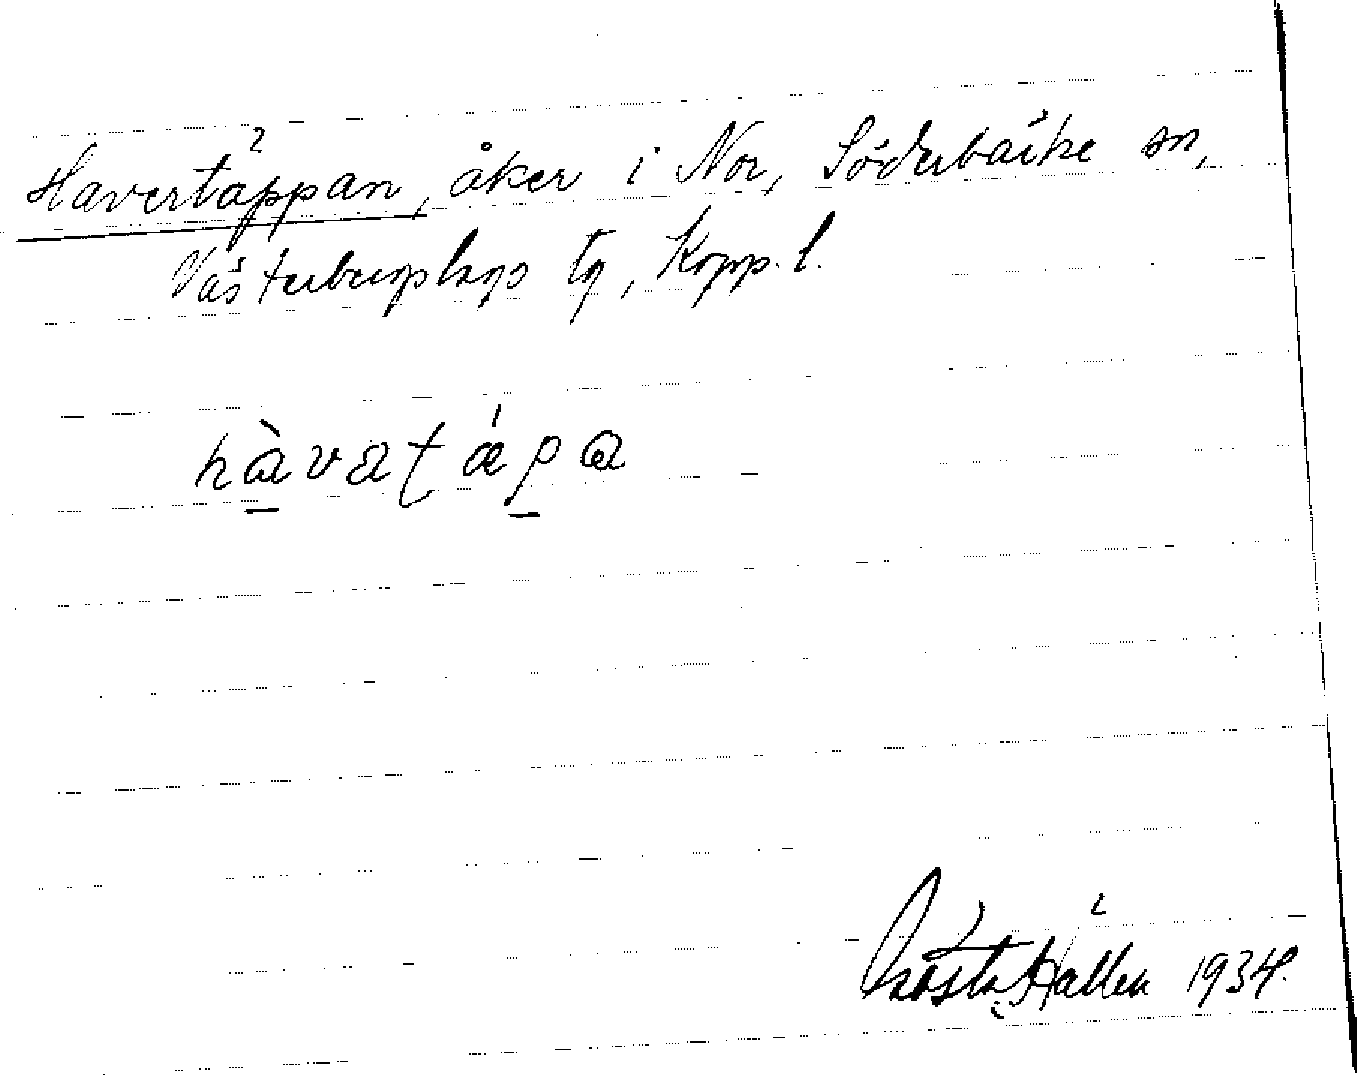 Havertäppan, åker i Nor, Söderbärke sn,
Västerbergslags tg, Kopp. l.
hàvatǽpa
Gösta Hallén 1934.